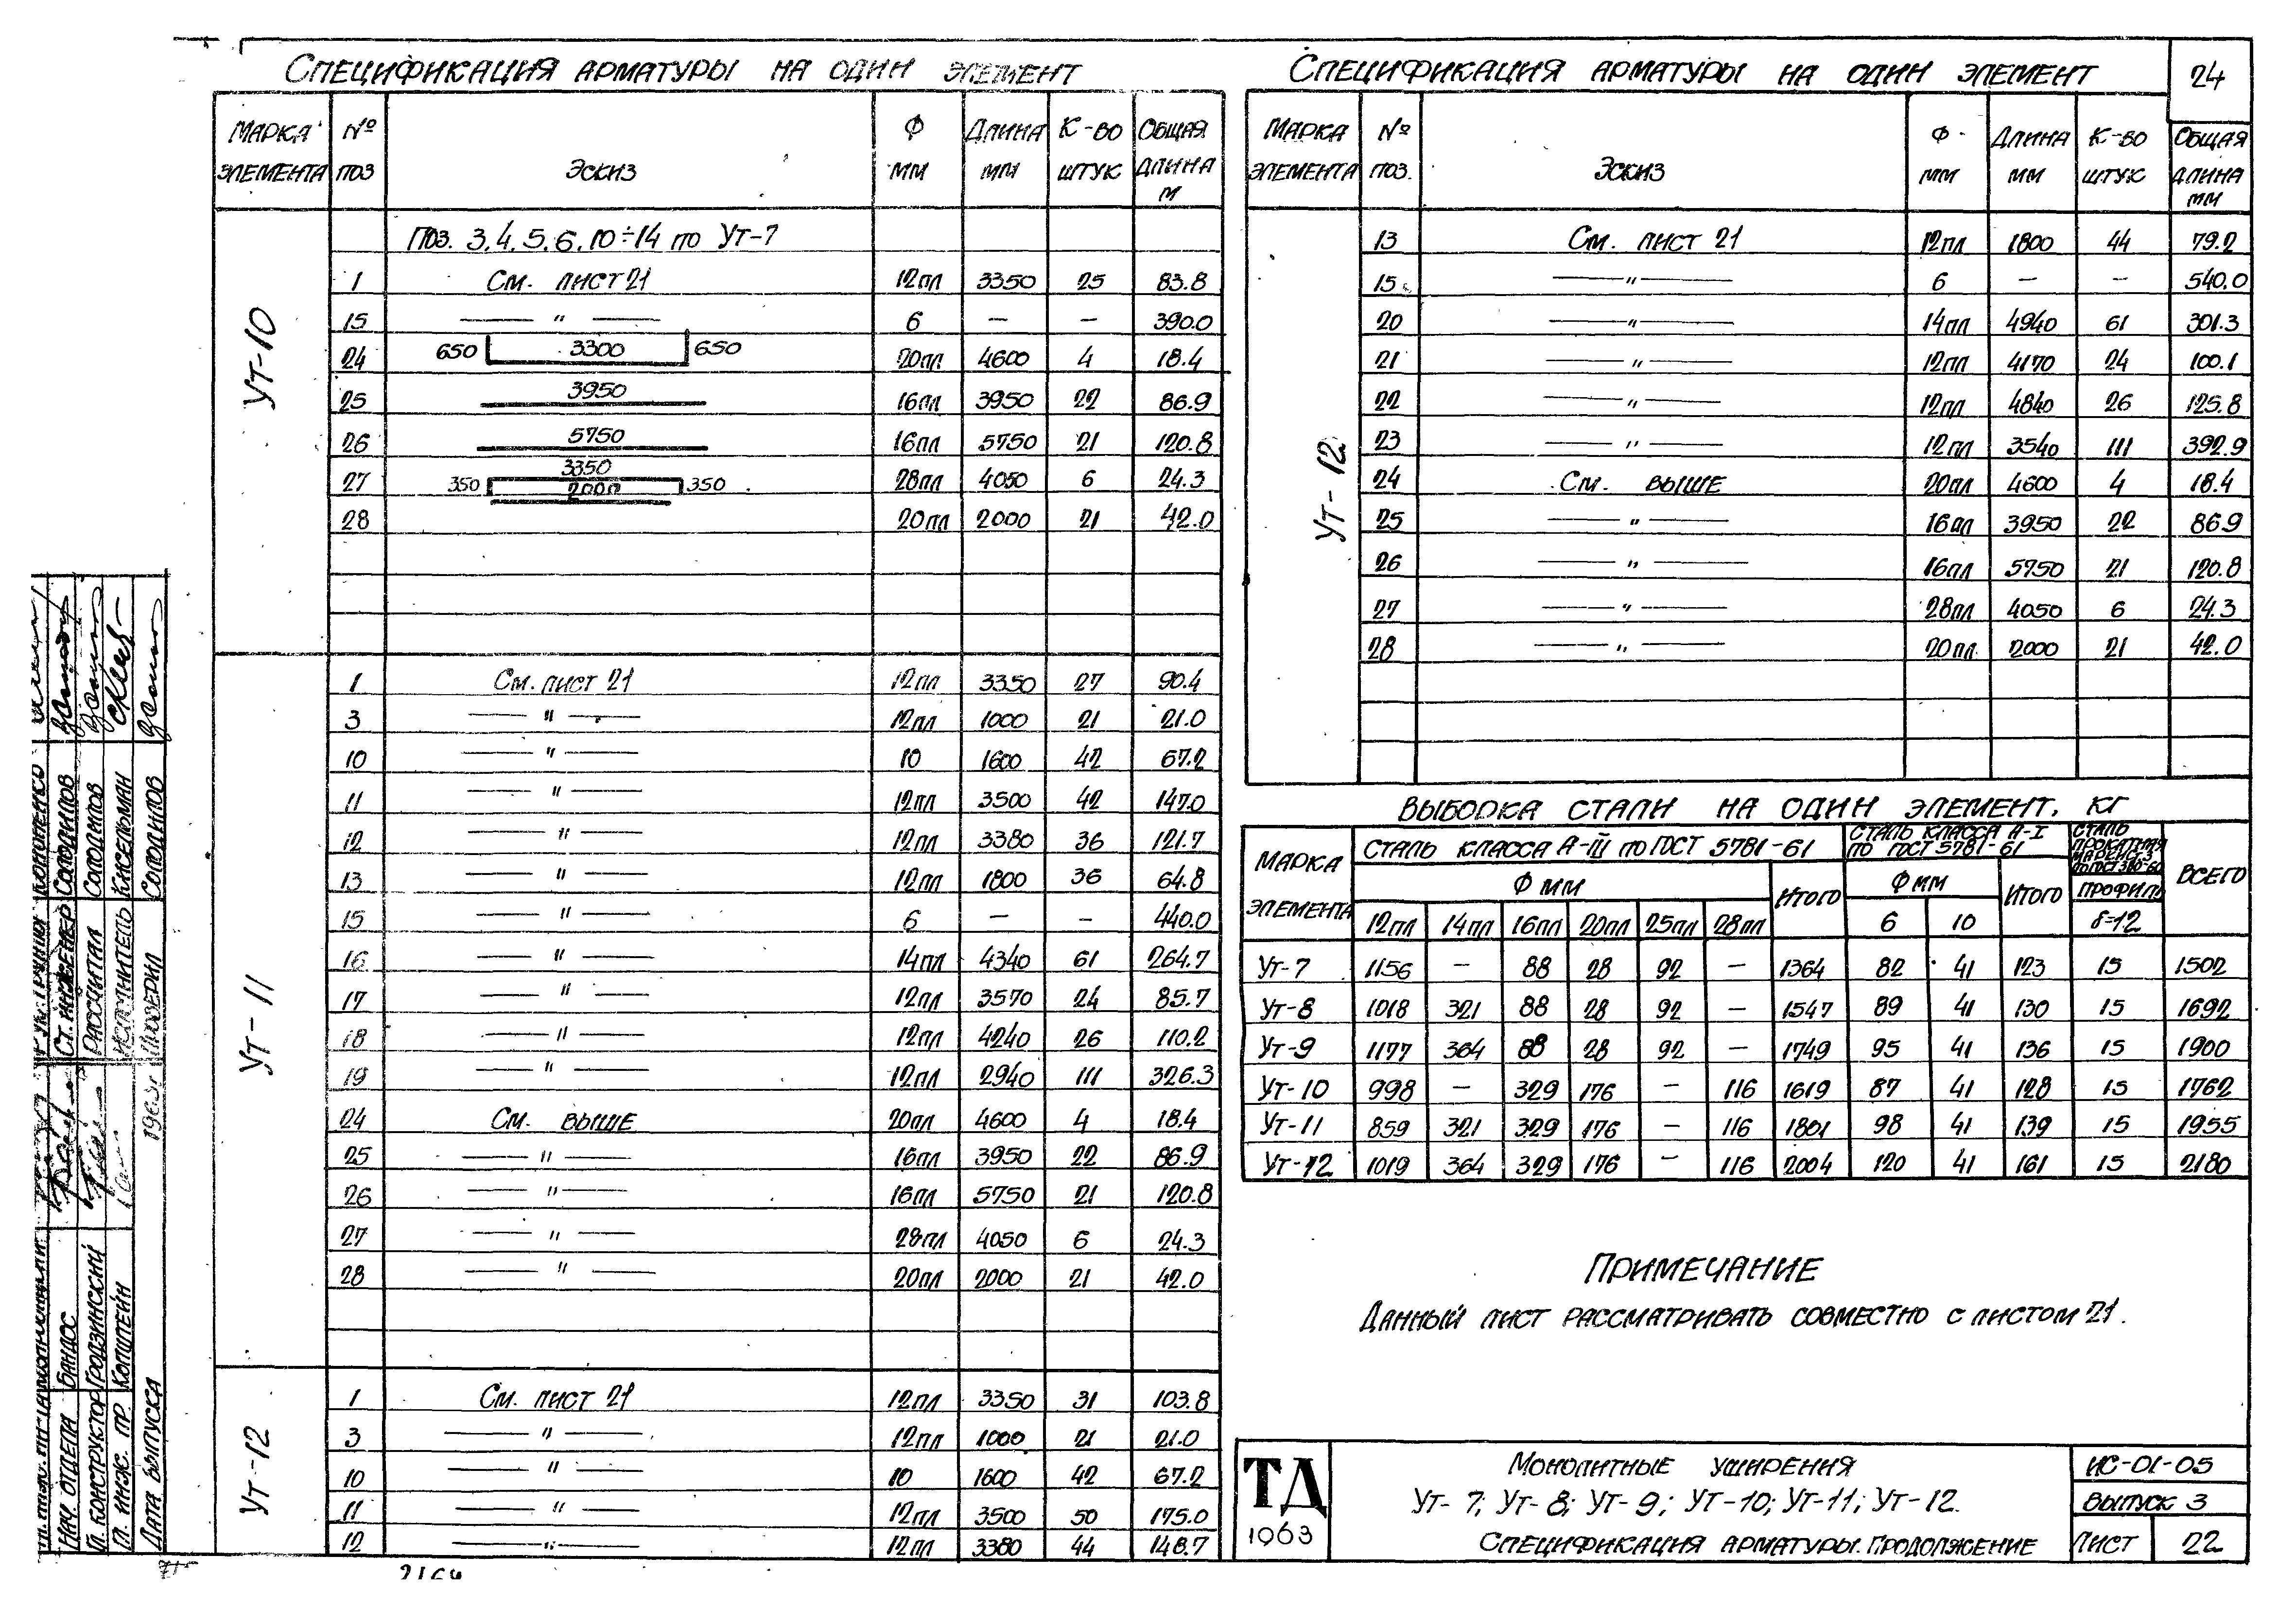 24
СПЕЦИФИКАЦИЯ АРМАТУРЫ НА ОДИН ЭЛЕМЕНТ
МАРКА ЭЛЕМЕНТА | № ПОЗ | ЭСКИЗ | Ф ММ | ДЛИНА ММ | К-ВО ШТУК | ОБЩАЯ ДЛИНА М
УТ-10
ПОЗ. 3,4,5,6,10÷14 ПО УТ-7
1 СМ. ЛИСТ 21 12ПЛ 3350 25 83.8
15 — " — 6 — — 390.0
24 650 3300 650 20ПЛ 4600 4 18.4
25 3950 16ПЛ 3950 22 86.9
26 5750 16ПЛ 5750 21 120.8
27 350 3350 350 28ПЛ 4050 6 24.3
28 2000 20ПЛ 2000 21 42.0
УТ-11
1 СМ. ЛИСТ 21 12ПЛ 3350 27 90.4
3 — " — 12ПЛ 1000 21 21.0
10 — " — 10 1600 42 67.2
11 — " — 12ПЛ 3500 42 147.0
12 — " — 12ПЛ 3380 36 121.7
13 — " — 12ПЛ 1800 36 64.8
15 — " — 6 — — 440.0
16 — " — 14ПЛ 4340 61 264.7
17 — " — 12ПЛ 3570 24 85.7
18 — " — 12ПЛ 4240 26 110.2
19 — " — 12ПЛ 2940 111 326.3
24 СМ. ВЫШЕ 20ПЛ 4600 4 18.4
25 — " — 16ПЛ 3950 22 86.9
26 — " — 16ПЛ 5750 21 120.8
27 — " — 28ПЛ 4050 6 24.3
28 — " — 20ПЛ 2000 21 42.0
УТ-12
1 СМ. ЛИСТ 21 12ПЛ 3350 31 103.8
3 — " — 12ПЛ 1000 21 21.0
10 — " — 10 1600 42 67.2
11 — " — 12ПЛ 3500 50 175.0
12 — " — 12ПЛ 3380 44 148.7
СПЕЦИФИКАЦИЯ АРМАТУРЫ НА ОДИН ЭЛЕМЕНТ
МАРКА ЭЛЕМЕНТА | № ПОЗ. | ЭСКИЗ | Ф ММ | ДЛИНА ММ | К-ВО ШТУК | ОБЩАЯ ДЛИНА ММ
УТ-12
13 СМ. ЛИСТ 21 12ПЛ 1800 44 79.2
15 — " — 6 — — 540.0
20 — " — 14ПЛ 4940 61 301.3
21 — " — 12ПЛ 4170 24 100.1
22 — " — 12ПЛ 4840 26 125.8
23 — " — 12ПЛ 3540 111 392.9
24 СМ. ВЫШЕ 20ПЛ 4600 4 18.4
25 — " — 16ПЛ 3950 22 86.9
26 — " — 16ПЛ 5750 21 120.8
27 — " — 28ПЛ 4050 6 24.3
28 — " — 20ПЛ 2000 21 42.0
ВЫБОРКА СТАЛИ НА ОДИН ЭЛЕМЕНТ, КГ
МАРКА ЭЛЕМЕНТА | СТАЛЬ КЛАССА А-III ПО ГОСТ 5781-61 | СТАЛЬ КЛАССА А-I ПО ГОСТ 5781-61 | СТАЛЬ ПРОКАТНАЯ | ВСЕГО
Ф ММ | ИТОГО | Ф ММ | ИТОГО | ПРОФИЛЬ
12ПЛ 14ПЛ 16ПЛ 20ПЛ 25ПЛ 28ПЛ 6 10 δ=12
УТ-7 1156 — 88 28 92 — 1364 82 41 123 15 1502
УТ-8 1018 321 88 28 92 — 1547 89 41 130 15 1692
УТ-9 1177 364 88 28 92 — 1749 95 41 136 15 1900
УТ-10 998 — 329 176 — 116 1619 87 41 128 15 1762
УТ-11 859 321 329 176 — 116 1801 98 41 139 15 1955
УТ-12 1019 364 329 176 — 116 2004 120 41 161 15 2180
ПРИМЕЧАНИЕ
ДАННЫЙ ЛИСТ РАССМАТРИВАТЬ СОВМЕСТНО С ЛИСТОМ 21.
ТД
1963
МОНОЛИТНЫЕ УШИРЕНИЯ
УТ-7; УТ-8; УТ-9; УТ-10; УТ-11; УТ-12.
СПЕЦИФИКАЦИЯ АРМАТУРЫ. ПРОДОЛЖЕНИЕ
ИС-01-05
ВЫПУСК 3
ЛИСТ 22
НАЧ. ОТДЕЛА БАНДОС
ГЛ. КОНСТРУКТОР ГРОДЗИНСКИЙ
ГЛ. ИНЖ. ПР. КОПШТЕЙН
ДАТА ВЫПУСКА 1963г
СТ. ИНЖЕНЕР СОЛОДИЛОВ
РАССЧИТАЛ СОЛОДИЛОВ
ИСПОЛНИТЕЛЬ КИСЕЛЬМАН
ПРОВЕРИЛ СОЛОДИЛОВ